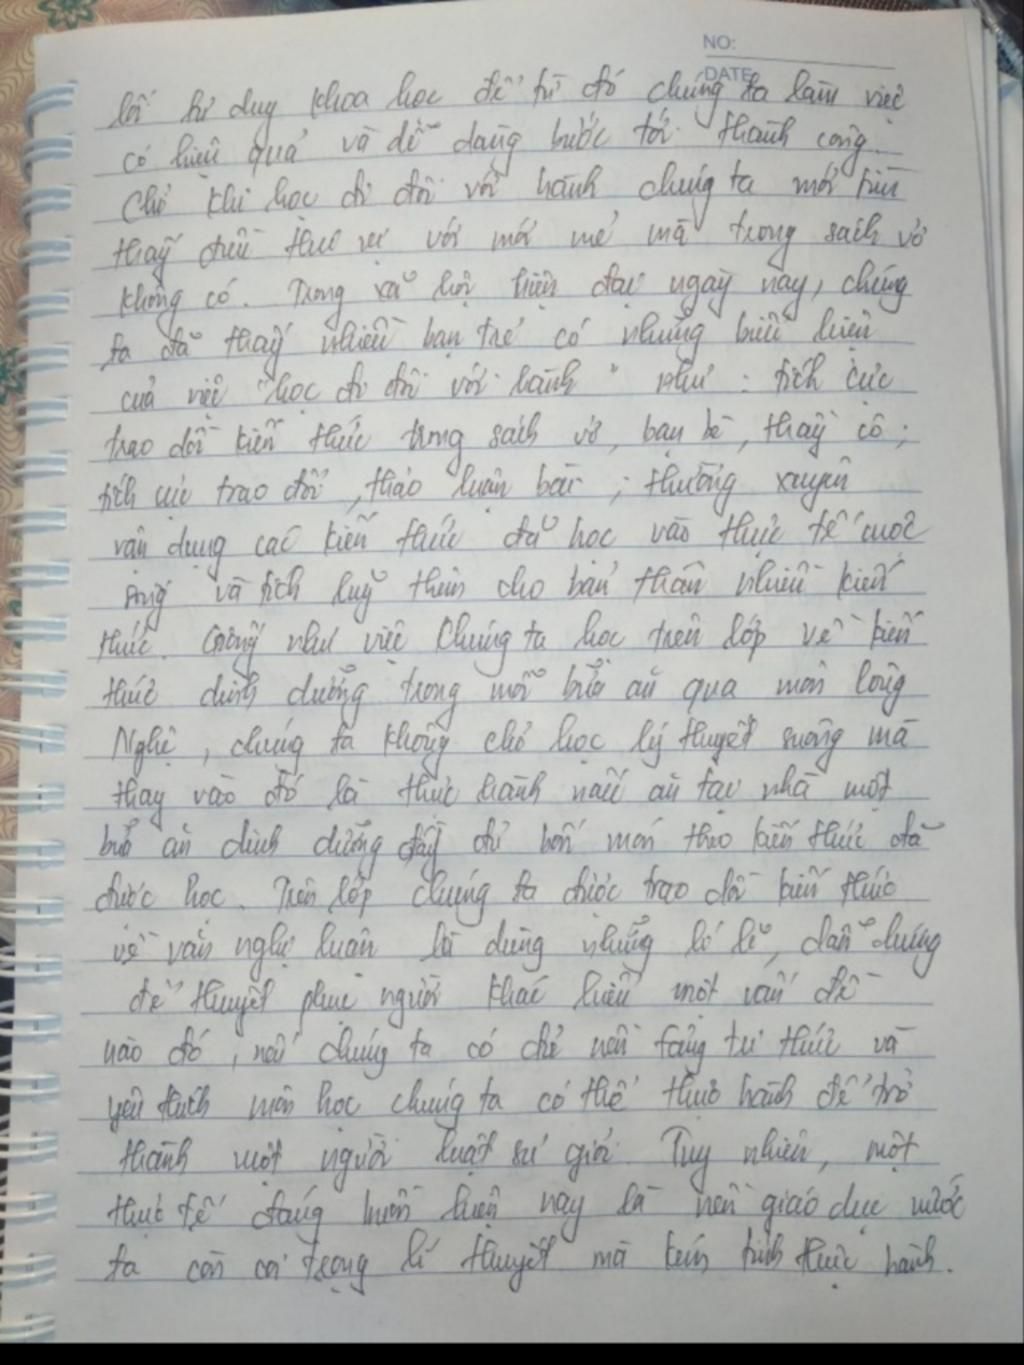 NO:
DATE
lối tư duy khoa học để từ đó chúng ta làm việc
có hiệu quả và dễ dàng bước tới thành công.
Chỉ khi học đi đôi với hành chúng ta mới tìm
thấy điều thú vị với mới mẻ mà trong sách vở
không có. Trong xã hội hiện đại ngày nay, chúng
ta đã thấy nhiều bạn trẻ có những biểu hiện
của việc "học đi đôi với hành" như: tích cực
trao dồi kiến thức trong sách vở, bạn bè, thầy cô;
tích cực trao đổi, thảo luận bài; thường xuyên
vận dụng các kiến thức đã học vào thực tế cuộc
sống và tích luỹ thêm cho bản thân nhiều kiến
thức. Giống như việc chúng ta học trên lớp về kiến
thức dinh dưỡng trong mỗi bữa ăn qua môn Công
Nghệ, chúng ta không chỉ học lý thuyết suông mà
thay vào đó là thực hành nấu ăn tại nhà một
bữa ăn dinh dưỡng đầy đủ bốn món theo kiến thức đã
được học. Trên lớp chúng ta được trao dồi kiến thức
về văn nghị luận là dùng những lí lẽ, dẫn chứng
để thuyết phục người khác hiểu một vấn đề
nào đó, nếu chúng ta có chỉ nền tảng tri thức và
yêu thích môn học chúng ta có thể thực hành để trở
thành một người luật sư giỏi. Tuy nhiên, một
thực tế đáng buồn hiện nay là nền giáo dục nước
ta còn coi trọng lí thuyết mà kém tính thực hành.